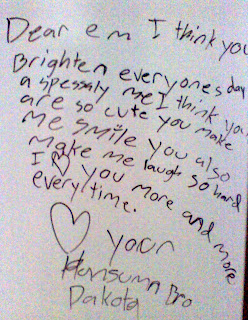 Dear em I think you
Brighten everyones day
a spessaly me I think you
are so cute you make
me smile you also
make me laugh so hard
I ♡ you more and more
every time.
♡ your
Hansumn Bro
Dakota